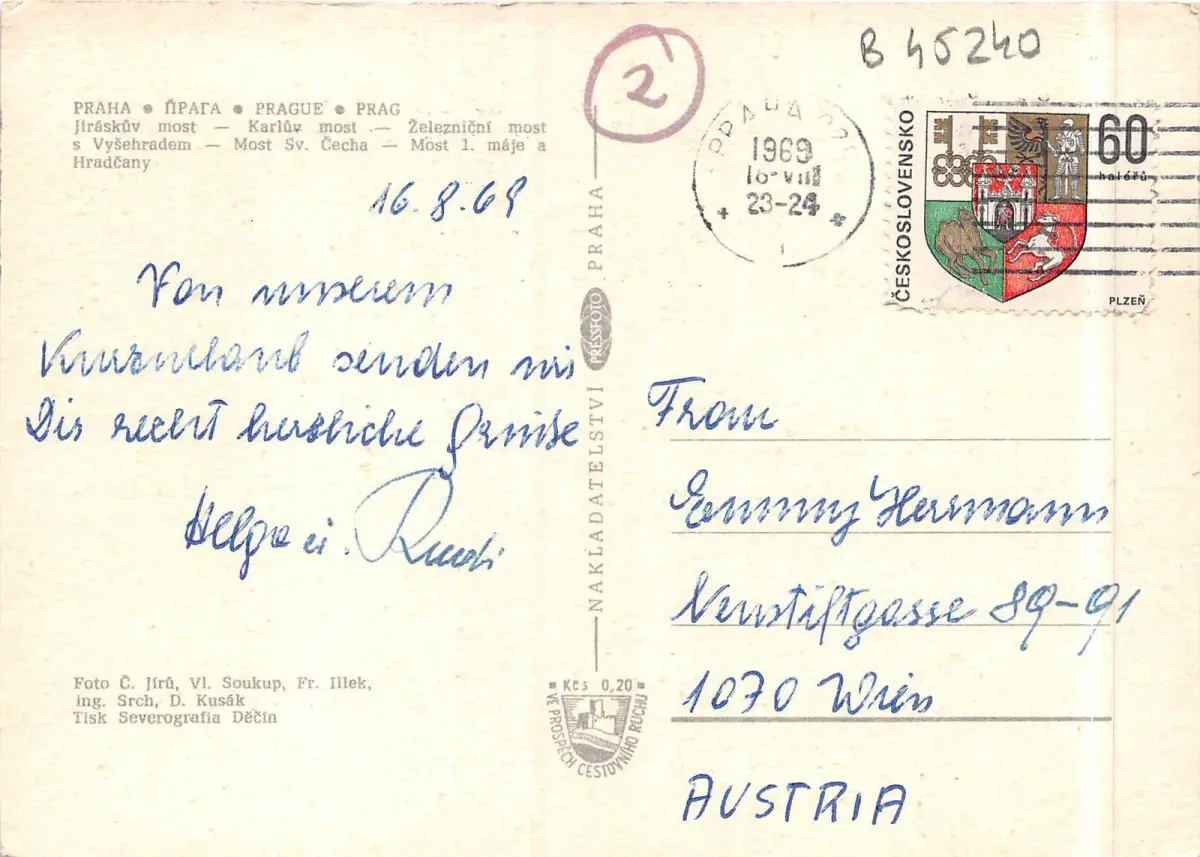 B 45240
2
PRAHA • ПРАГА • PRAGUE • PRAG
Jiráskův most — Karlův most — Železniční most
s Vyšehradem — Most Sv. Čecha — Most 1. máje a
Hradčany
16.8.69
Von unserem
Kurzurlaub senden wir
Dir recht herzliche Grüße
Helga u. Rudi
Foto Č. Jírů, Vl. Soukup, Fr. Illek,
ing. Srch, D. Kusák
Tisk Severografia Děčín
NAKLADATELSTVÍ PRESSFOTO PRAHA
Kčs 0,20
VE PROSPĚCH CESTOVNÍHO RUCHU
PRAHA
1969
18-VIII
23-24
1
ČESKOSLOVENSKO
60
haléřů
PLZEŇ
Frau
Emmy Herrmann
Neustiftgasse 89-91
1070 Wien
AUSTRIA